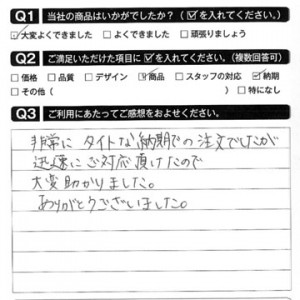 Q1 当社の商品はいかがでしたか？（☑を入れてください。）
☑大変よくできました □よくできました □頑張りましょう
Q2 ご満足いただけた項目に☑を入れてください。（複数回答可）
□価格 □品質 □デザイン ☑商品 □スタッフの対応 ☑納期
□その他（ ）□特になし
Q3 ご利用にあたってご感想をおよせください。
非常に タイトな納期での注文でしたが
迅速にご対応頂けたので
大変助かりました。
ありがとうございました。